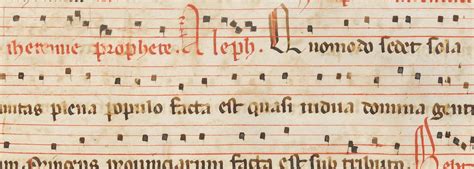 iheremie prophete. Aleph. Quomodo sedet sola
uitas plena populo facta est quasi uidua domina genti
um Princeps prouinciarum facta est sub tributo. Beth